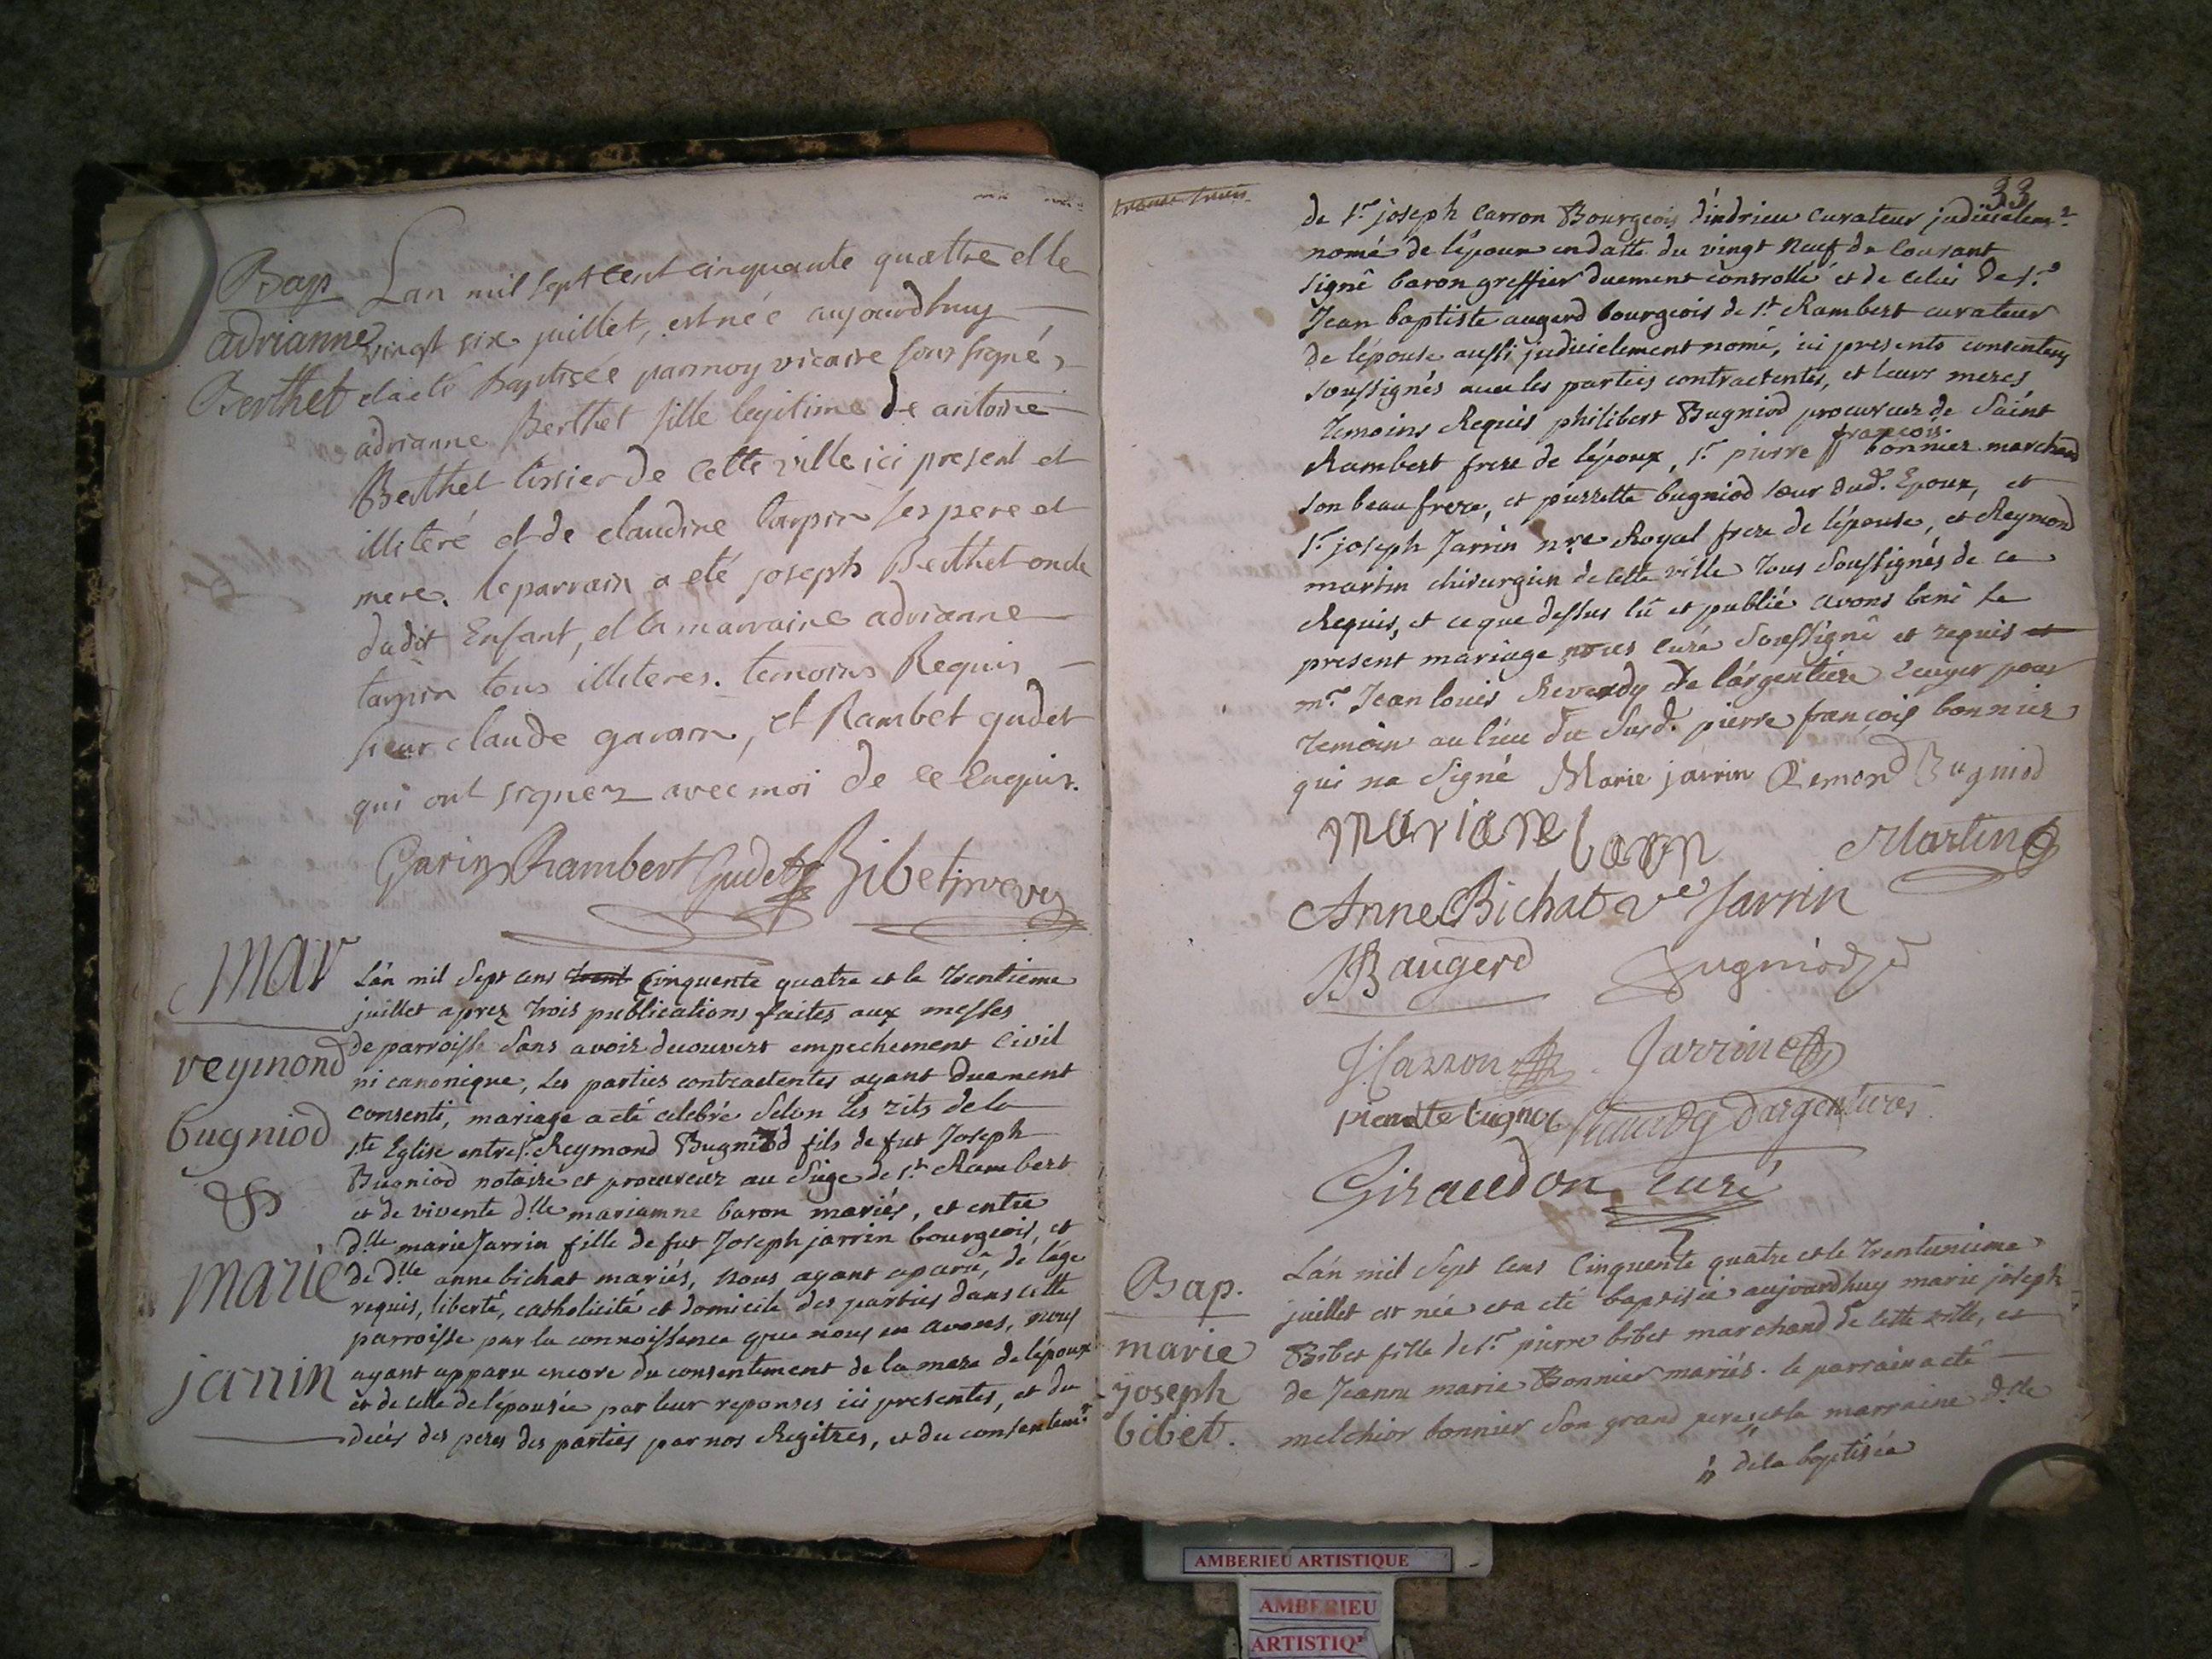 Bap
adrianne
Berthet
Lan mil sept cent cinquante quattre et le
vingt six juillet, est née aujourdhuy
et a eté Baptisée par moy vicaire soussigné,
adrianne Berthet fille legitime de antoine
Berthet tissier de cette ville ici present et
illiteré et de claudine tarpin ses pere et
mere. le parrain a eté joseph Berthet oncle
dudit Enfant, et la marraine adrianne
tarpin tous illiteres. temoins Requis
sieur claude gavarn, et Rambet gudet
qui ont signez avec moi de ce Enquis.
Garin Rambert Gudet Bibet
mar
reymond
bugniod
&
marie
jarrin
Lán mil sept cens trent Cinquente quatre et le trentieme
juillet aprez trois publications faites aux messes
de parroisse sans avoir decouvert empechement Civil
ni canonique, Les parties contractentes ayant duement
consenti, mariage a eté celebré selon les rits de la
ste Eglise entre sr Reymond Bugniod fils de fut Joseph
Bugniod notaire et procureur au siege de st Rambert
et de vivente dlle marianne baron mariés, et entre
dlle marie Jarrin fille de fut Joseph jarrin bourgeois, et
de dlle anne bichat mariés, nous ayant aparû, de lége
requis, liberté, catholicité et domicile des parties dans cette
parroisse par la connoissence que nous en avons, nous
ayant apparu encore du consentement de la mere de lépoux
et de celle de lépousée par leur reponses ici presentes, et du
decés des peres des parties par nos Regitres, et du consentemt
trente trois
33
de sr joseph Carron Bourgeois díndrieu curateur judicielemt
nomé de lépoux en datte du vingt neuf du Courant
signé baron greffier duement controllé et de celui de sr
Jean baptiste augerd bourgeois de st Rambert curateur
de lépouse aussi judicielement nomé, ici presents consentens
soussignés avec les parties contractentes, et leurs meres
temoins Requis philibert Bugniod procureur de Saint
Rambert frere de lépoux, sr pierre françois bonnier marchand
son beau frere, et pierrette bugniod sœur dud. Epoux, et
sr joseph Jarrin nre Royal frere de lépouse, et Reymond
martin chirurgien de cette ville tous soussignés de ce
Requis, et ce que dessus lû et publié avons beni le
present mariage nous curé soussigné et requis et
mr Jean louis Reverdy de lárgentiere Ecuyer pour
temoin au lieu du susd. pierre françois bonnier
qui na signé Marie jarrin Remond Bugniod
mariane baron Martin
Anne Bichat ve Jarrin
JB augerd Bugniod
J: Carron Jarrin
pierrette bugnod Reverdy dargentieres
Giraudon curé
Bap.
marie
joseph
bibet.
Lán mil sept cens Cinquente quatre et le trentunieme
juillet est née et a eté baptisée aujourdhuy marie joseph
Bibet fille de sr pierre bibet marchand de cette ville, et
de Jeanne marie Bonnier mariés. le parrain a eté
melchior bonnier son grand pere, et la marraine dlle
de la baptisée
AMBERIEU ARTISTIQUE
AMBERIEU
ARTISTIQ